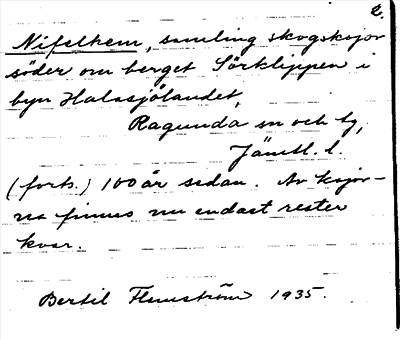 2.
Nifelhem, samling skogskojor
söder om berget Sörklippen i
byn Halasjölandet,
Ragunda sn och tg,
Jämtl. l.
(forts.) 100 år sedan. Av kojor-
na finnes nu endast rester
kvar.
Bertil Flemström 1935.